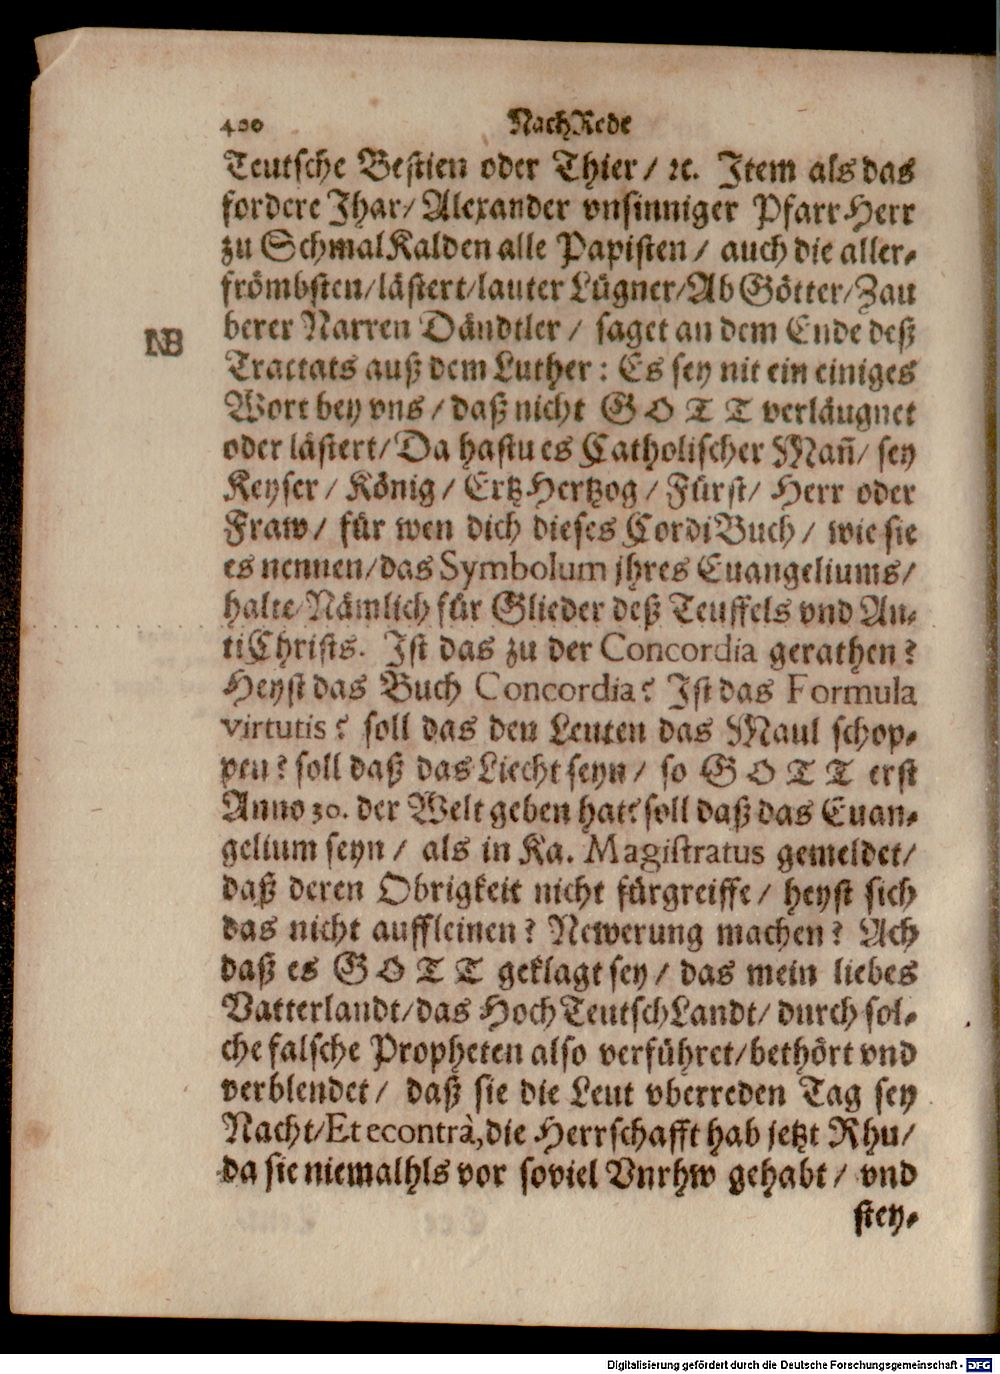 400 NachRede
Teutsche Bestien oder Thier/ ꝛc. Item als das
fordere Jhar/ Alexander vnsinniger PfarrHerr
zu SchmalKalden alle Papisten / auch die aller-
frömbsten/lästert/lauter Lügner/AbGötter/Zau
berer Narren Dändtler / saget an dem Ende deß
NB
Tractats auß dem Luther: Es sey nit ein einiges
Wort bey vns / daß nicht GOTT verläugnet
oder lästert/Da hastu es Catholischer Mañ/ sey
Keyser / König / ErtzHertzog / Fürst/ Herr oder
Fraw/ für wen dich dieses CordiBuch / wie sie
es nennen/das Symbolum jhres Euangeliums/
halte/Nämlich für Glieder deß Teuffels vnd An-
tiChrists. Ist das zu der Concordia gerathen?
Heyst das Buch Concordia? Ist das Formula
virtutis? soll das den Leuten das Maul schop-
pen? soll daß das Liecht seyn/ so GOTT erst
Anno 30. der Welt geben hat? soll daß das Euan-
gelium seyn / als in Ka. Magistratus gemeldet/
daß deren Obrigkeit nicht fürgreiffe / heyst sich
das nicht auffleinen? Newerung machen? Ach
daß es GOTT geklagt sey / das mein liebes
Vatterlandt/das HochTeutschLandt/ durch sol-
che falsche Propheten also verführet/bethört vnd
verblendet / daß sie die Leut vberreden Tag sey
Nacht/Et econtrà, die Herrschafft hab jetzt Rhu/
da sie niemalhls vor soviel Vnrhw gehabt / vnd
stey-
Digitalisierung gefördert durch die Deutsche Forschungsgemeinschaft - DFG